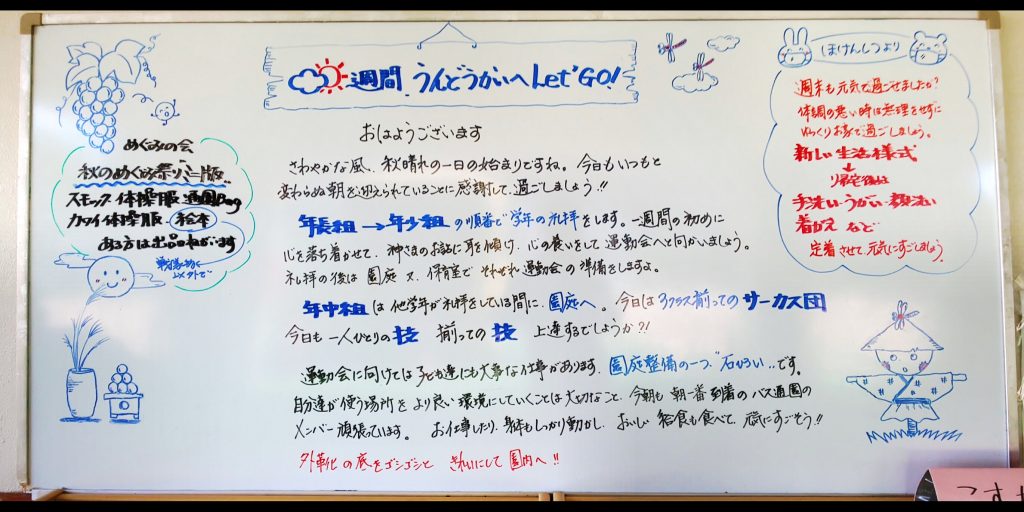 週間 うんどうかいへ Let'GO!
おはようございます
さわやかな風、秋晴れの一日の始まりですね。今日もいつもと
変わらぬ朝を迎えられていることに感謝して、過ごしましょう!!
年長組→年少組の順番で学年の礼拝をします。一週間の初めに
心を落ち着かせて、神さまのお話に耳を傾け、心の養いをして運動会へと向かいましょう。
礼拝の後は園庭又、保育室でそれぞれ運動会の準備をしますよ。
年中組は他学年が礼拝をしている間に、園庭へ。今日は3クラス揃ってのサーカス団
今日も一人ひとりの技 揃っての技 上達するでしょうか?!
運動会に向けては子ども達にも大事な仕事があります。園庭整備の一つ"石ひろい"です。
自分達が使う場所をより良い環境にしていくことは大切なこと、今朝も朝一番到着のバス通園の
メンバー頑張っています。 お仕事したり、身体もしっかり動かし、おいしい給食も食べて、元気にすごそう!!
外靴の底をゴシゴシと きれいにして園内へ!!
めぐみの会
秋のめぐみ祭りミニ版
スモック 体操服 通園Bag
カラー体操服 絵本
ある方は出品ねがいます
ほけんしつより
週末も元気で過ごせましたか?
体調の悪い時は無理をせずに
ゆっくりお家で過ごしましょう。
新しい生活様式
帰宅後は
手洗い・うがい・顔洗い
着がえ など
定着させて、元気にすごしましょう
こすも